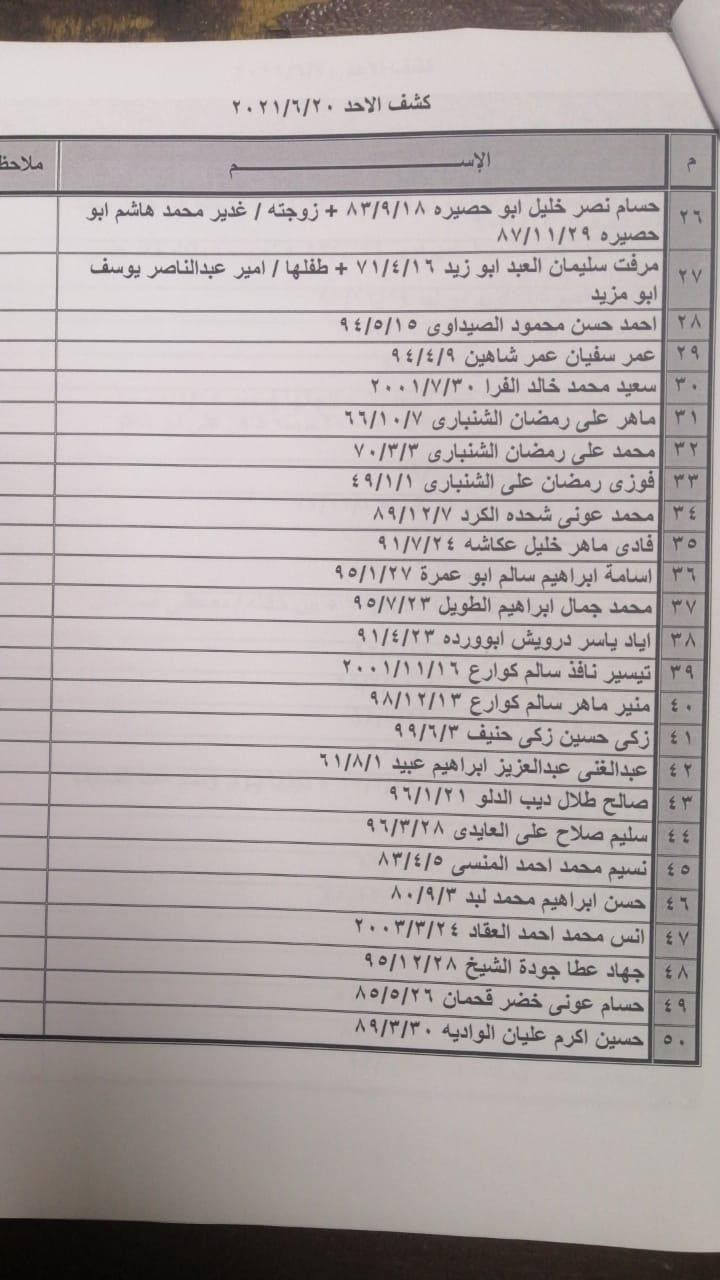 كشف الاحد ٢٠٢١/٦/٢٠
م الإســـــــم
٢٦ حسام نصر خليل ابو حصيره ٨٣/٩/١٨ + زوجته / غدير محمد هاشم ابو
حصيره ٨٧/١١/٢٩
٢٧ مرفت سليمان العبد ابو زيد ٧١/٤/١٦ + طفلها / امير عبدالناصر يوسف
ابو مزيد
٢٨ احمد حسن محمود الصيداوى ٩٤/٥/١٥
٢٩ عمر سفيان عمر شاهين ٩٤/٤/٩
٣٠ سعيد محمد خالد الفرا ٢٠٠١/٧/٣٠
٣١ ماهر على رمضان الشنبارى ٦٦/١٠/٧
٣٢ محمد على رمضان الشنبارى ٧٠/٣/٣
٣٣ فوزى رمضان على الشنبارى ٤٩/١/١
٣٤ محمد عونى شحده الكرد ٨٩/١٢/٧
٣٥ فادى ماهر خليل عكاشه ٩١/٧/٢٤
٣٦ اسامة ابراهيم سالم ابو عمرة ٩٥/١/٢٧
٣٧ محمد جمال ابراهيم الطويل ٩٥/٧/٢٣
٣٨ اياد ياسر درويش ابوورده ٩١/٤/٢٣
٣٩ تيسير نافذ سالم كوارع ٢٠٠١/١١/١٦
٤٠ منير ماهر سالم كوارع ٩٨/١٢/١٣
٤١ زكى حسين زكى حنيف ٩٩/٦/٣
٤٢ عبدالغنى عبدالعزيز ابراهيم عبيد ٦١/٨/١
٤٣ صالح طلال ديب الدلو ٩٦/١/٢١
٤٤ سليم صلاح على العايدى ٩٦/٣/٢٨
٤٥ نسيم محمد احمد المنسى ٨٣/٤/٥
٤٦ حسن ابراهيم محمد لبد ٨٠/٩/٣
٤٧ انس محمد احمد العقاد ٢٠٠٣/٣/٢٤
٤٨ جهاد عطا جودة الشيخ ٩٥/١٢/٢٨
٤٩ حسام عونى خضر قحمان ٨٥/٥/٢٦
٥٠ حسين اكرم عليان الواديه ٨٩/٣/٣٠